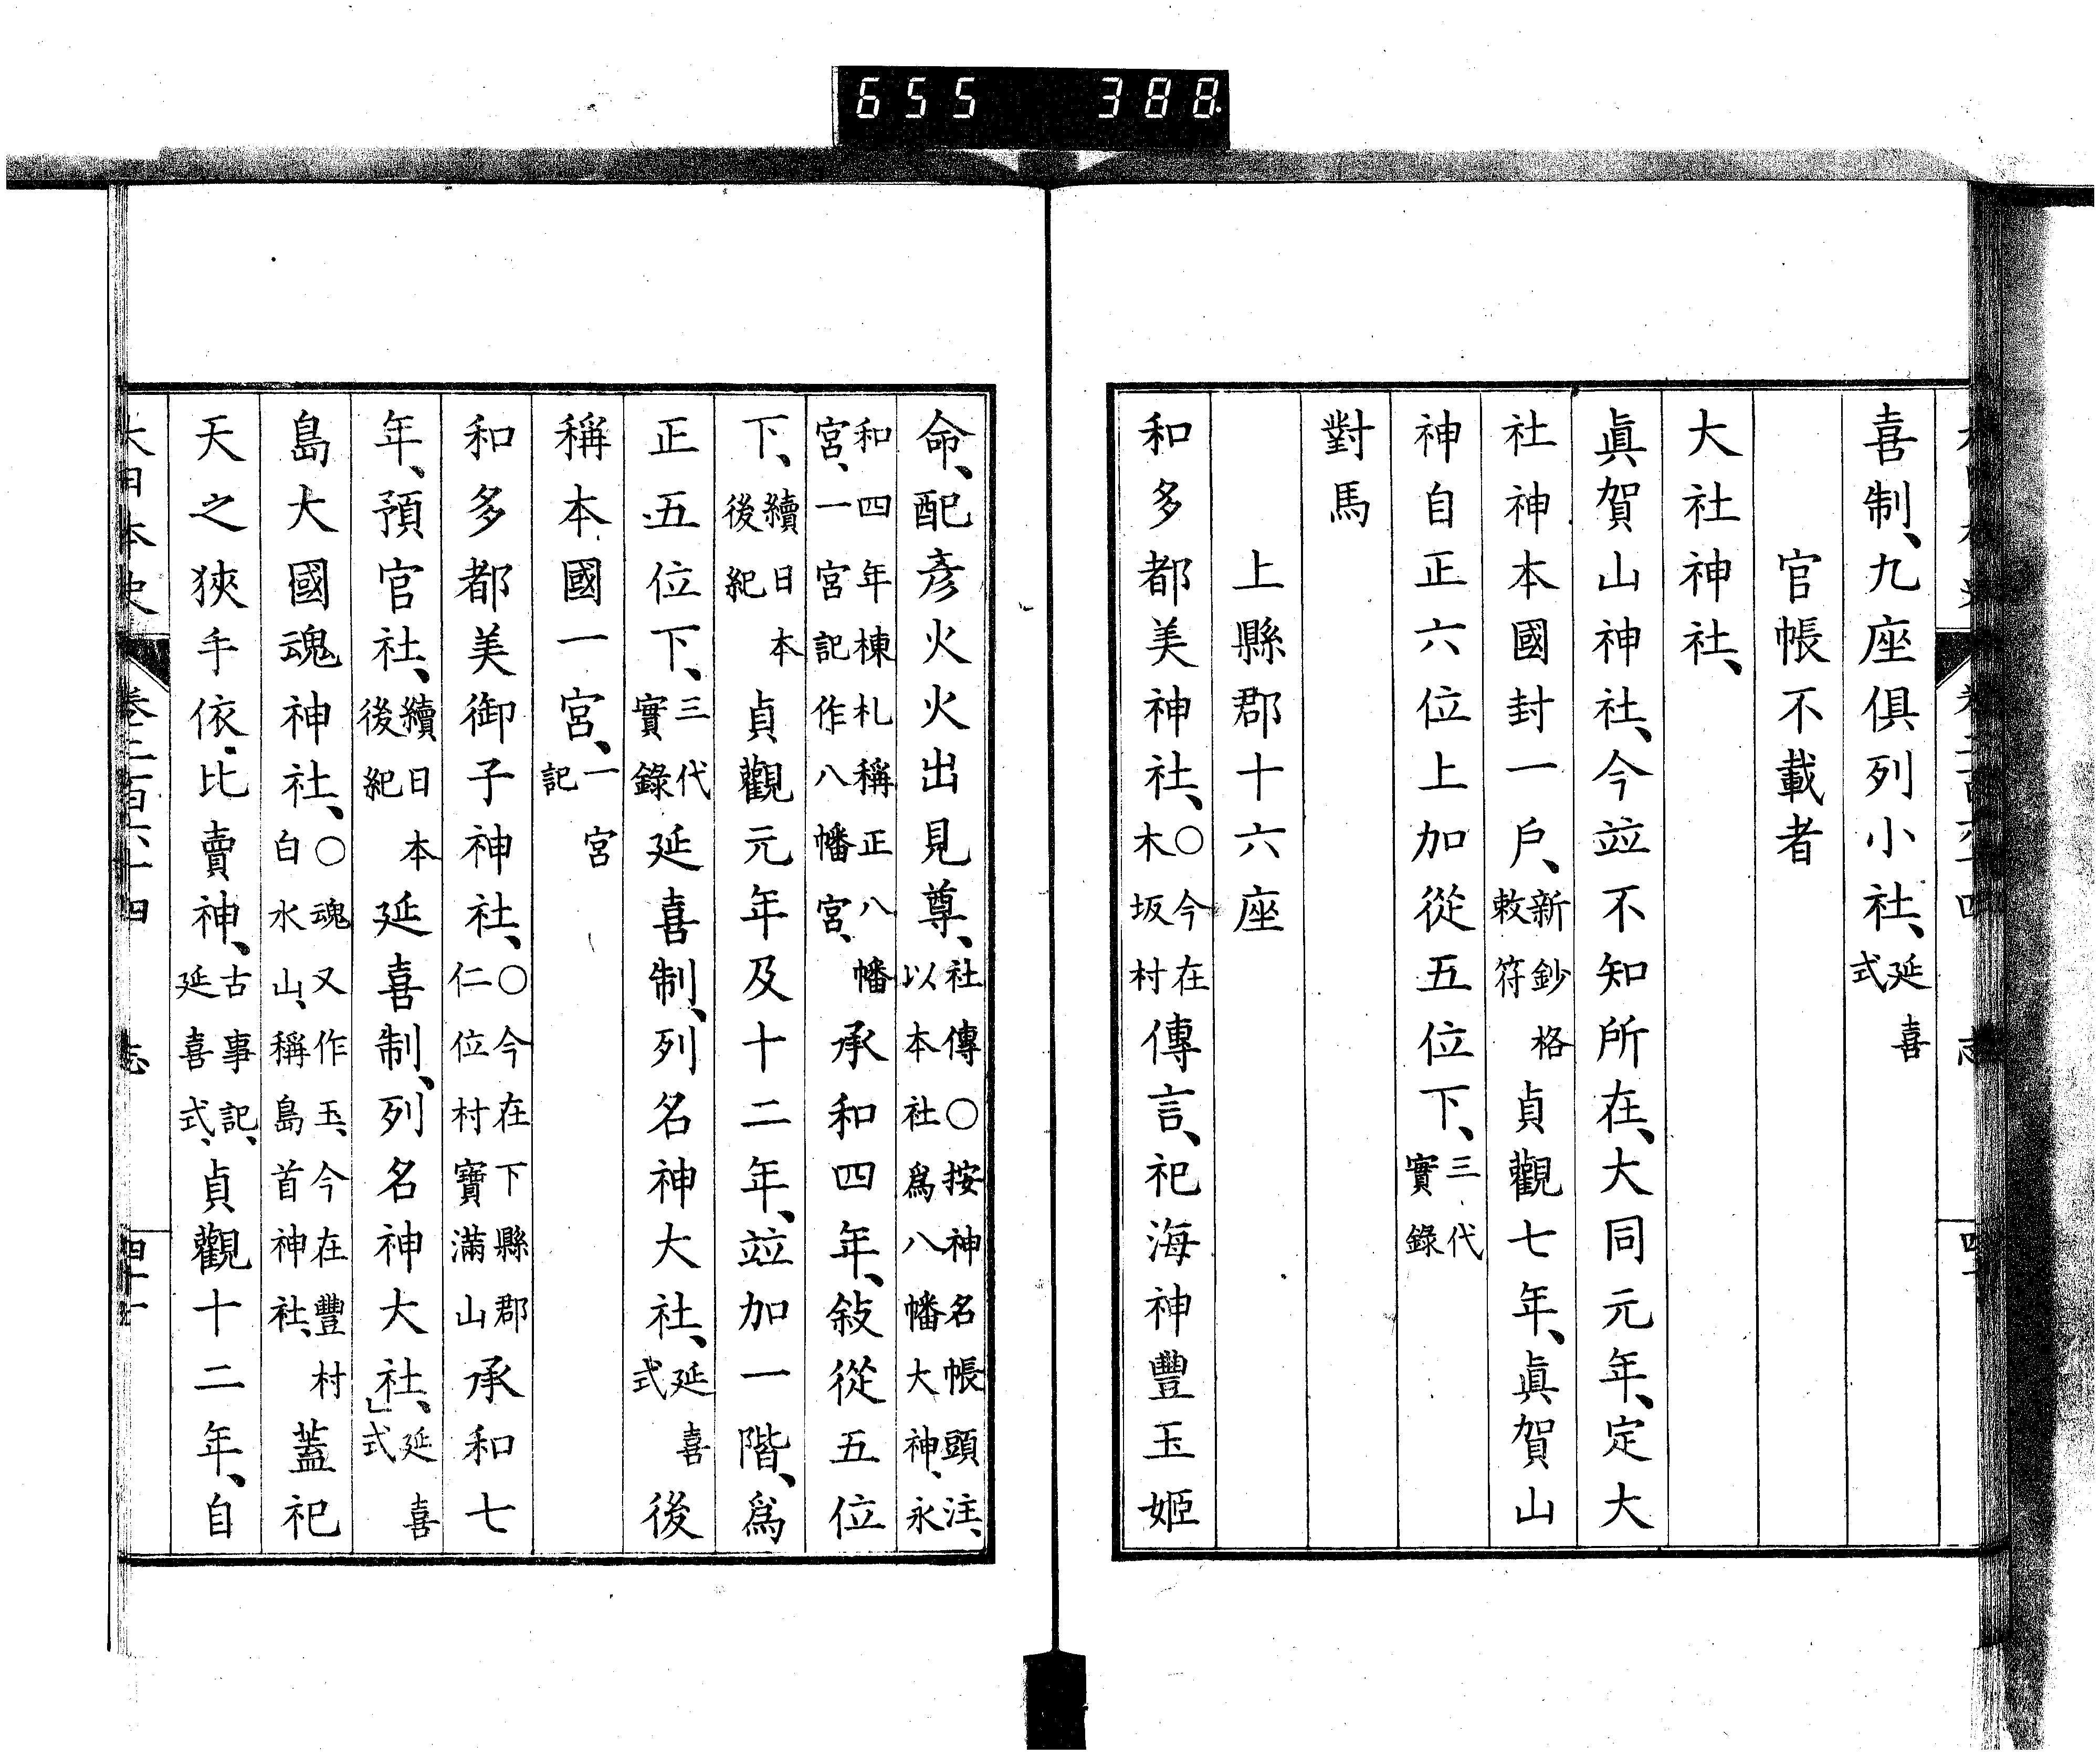 655 388
喜制、九座俱列小社、延喜式
官帳不載者
大社神社、
眞賀山神社、今竝不知所在、大同元年、定大
社神本國封一戶、新鈔格敕符貞觀七年、眞賀山
神自正六位上加從五位下、三代實錄
對馬
上縣郡十六座
和多都美神社、○今在木坂村傳言、祀海神豐玉姬
命、配彥火火出見尊、社傳○按神名帳頭注、以本社爲八幡大神、永
和四年棟札稱正八幡宮、一宮記作八幡宮、承和四年、敍從五位
下、續日本後紀貞觀元年及十二年、竝加一階、爲
正五位下、三代實錄延喜制、列名神大社、延喜式後
稱本國一宮、一宮記
和多都美御子神社、○今在下縣郡仁位村寶滿山承和七
年、預官社、續日本後紀延喜制、列名神大社、」延喜式
島大國魂神社、○魂又作玉、今在豐村白水山、稱島首神社、蓋祀
天之狹手依比賣神、古事記、延喜式、貞觀十二年、自
大日本史 卷二百六十四 志 四十一